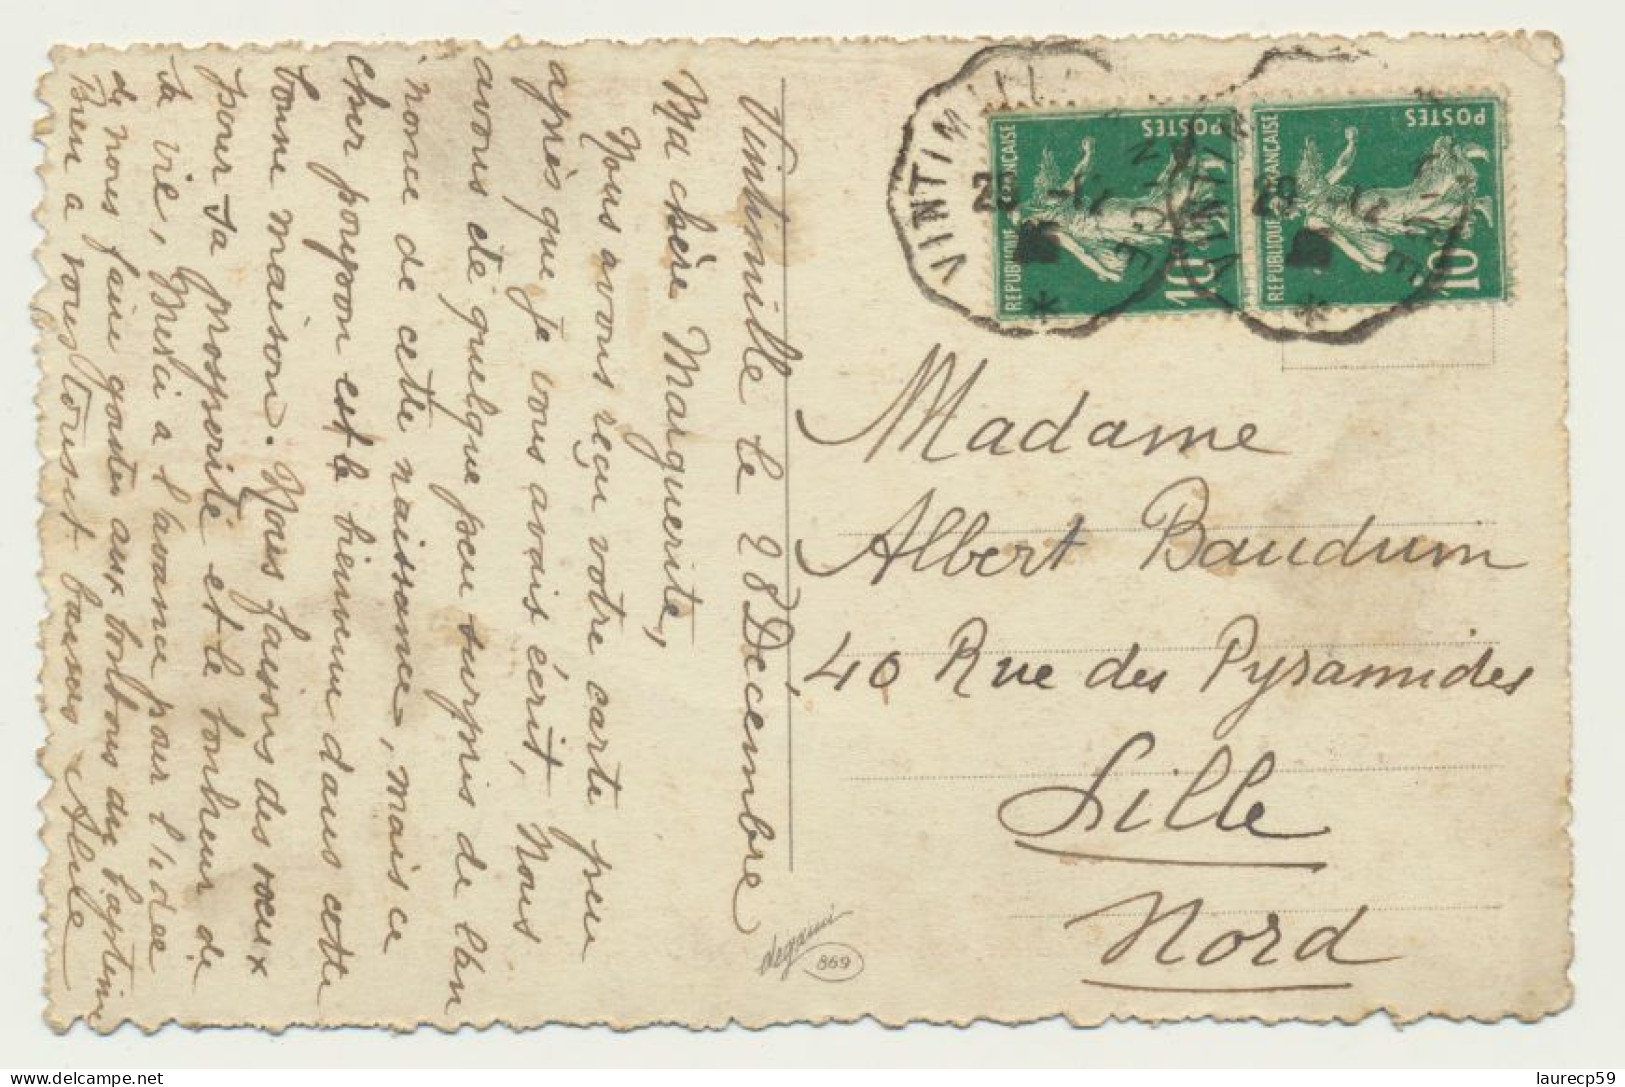 Vintimille le 28 Décembre
Ma chère Marguerite,
Nous avons reçu votre carte peu
après que je vous avais écrit, Nous
avons été quelque peu surpris de l'an
nonce de cette naissance, mais ce
cher poupon est le bienvenu dans cette
bonne maison. Nous faisons des voeux
pour sa prospérité et le bonheur de
sa vie, Merci à l'avance pour l'idée
de nous faire goûter aux bonbons du baptême
Bien à vous tous et baisers
VINTIMILLE
REPUBLIQUE FRANÇAISE
POSTES
10
REPUBLIQUE FRANÇAISE
POSTES
10
Madame
Albert Baudum
40 Rue des Pyramides
Lille
Nord
degami
869
laurecp59